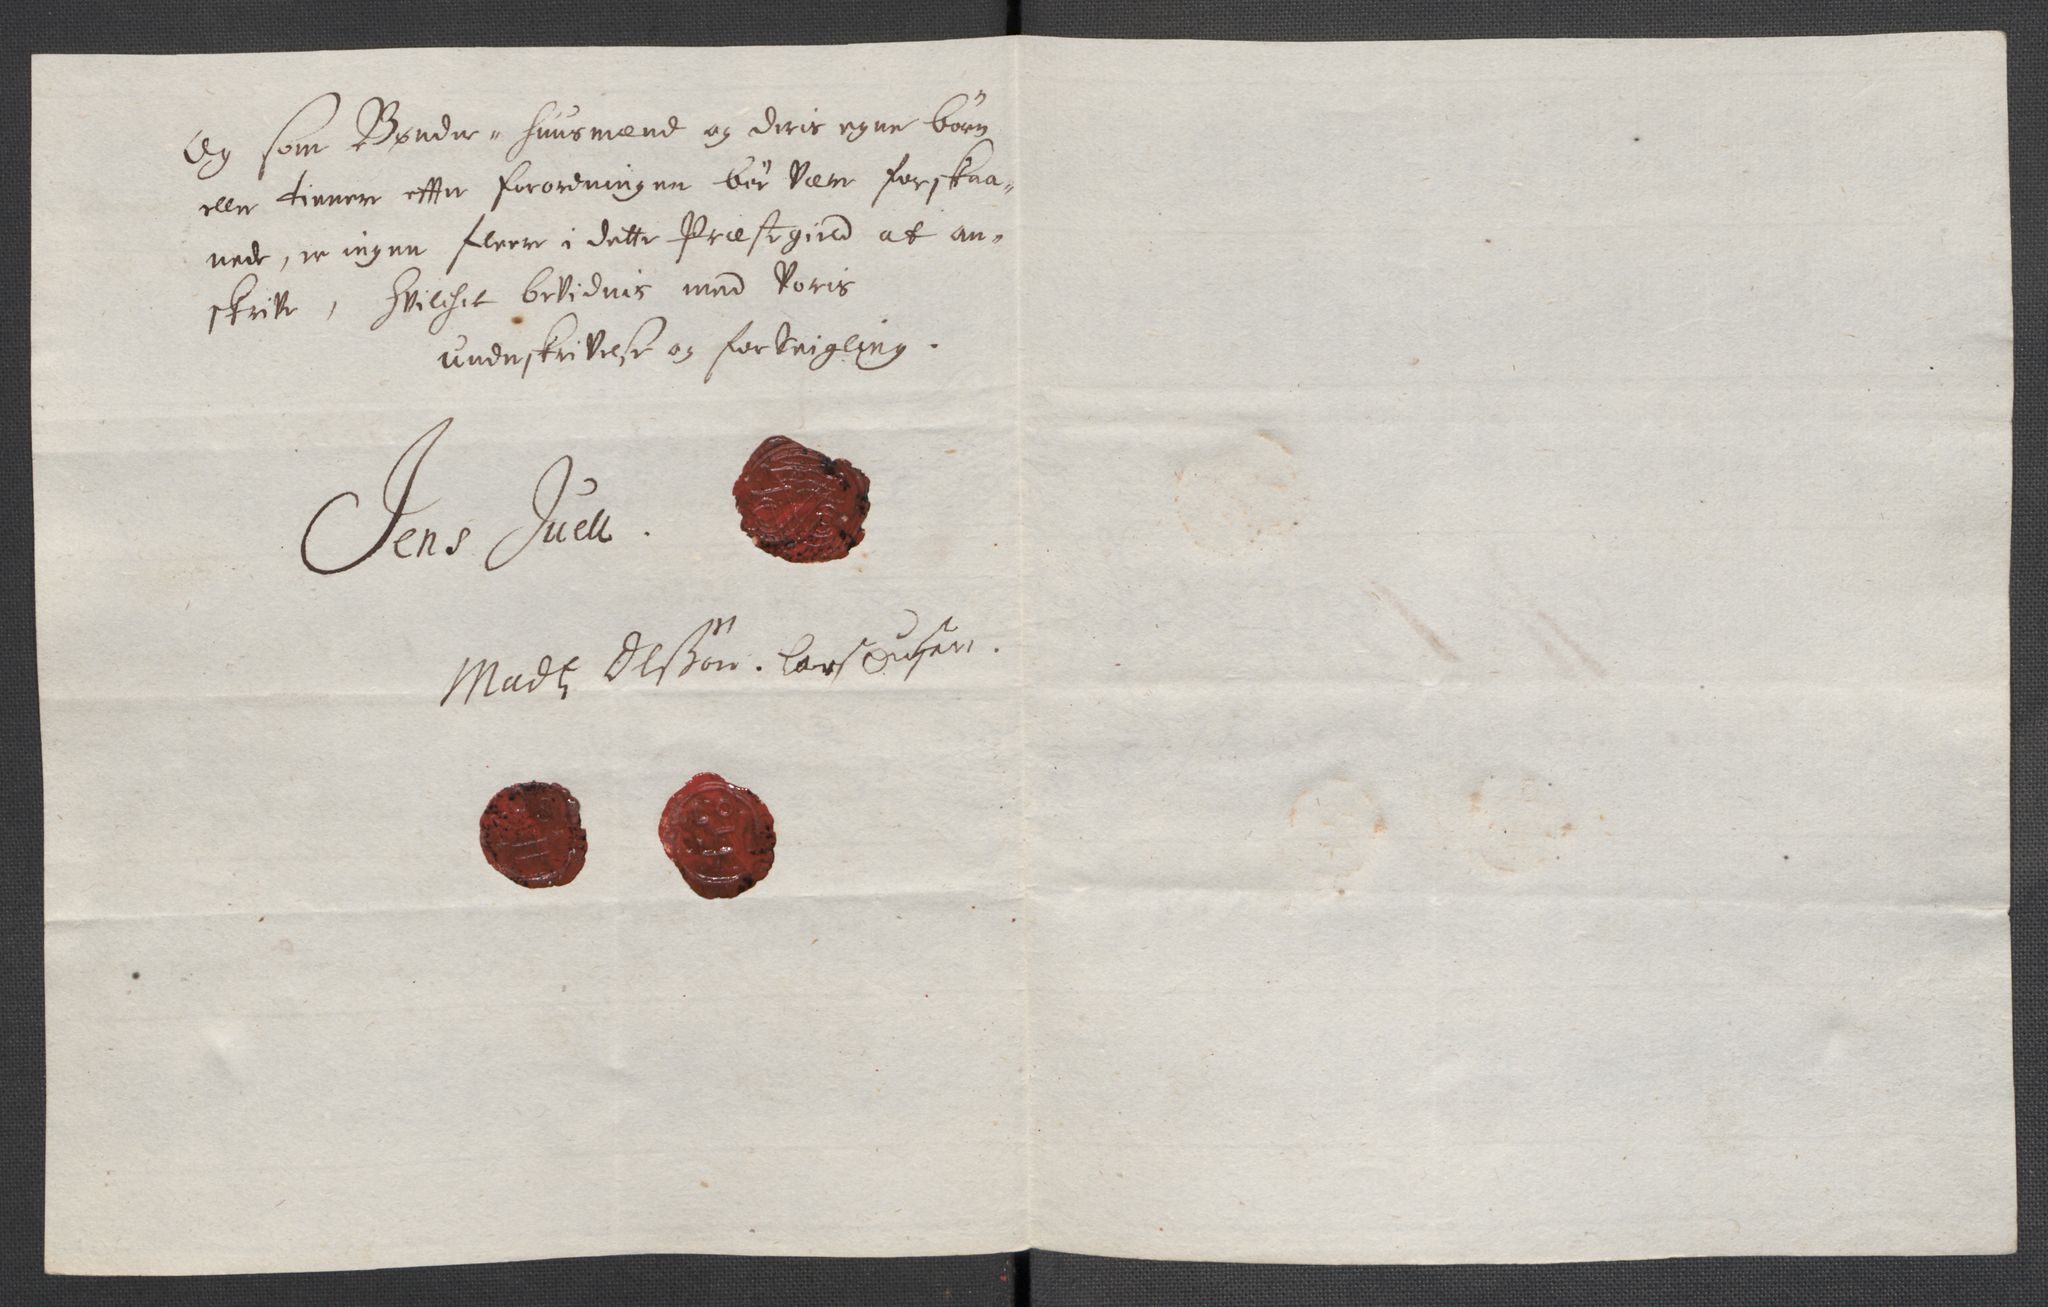 Og som Bønder- Huusmænd og deris egne børn
eller tienere effter forordningen bør være forskaa-
nede, er ingen fleere i dette Præstegield at an-
skrive, hvilchet bevidnis med voris
underskrivelse og forseigling.
Jens Juell.
Madtz Olssøn. Lars